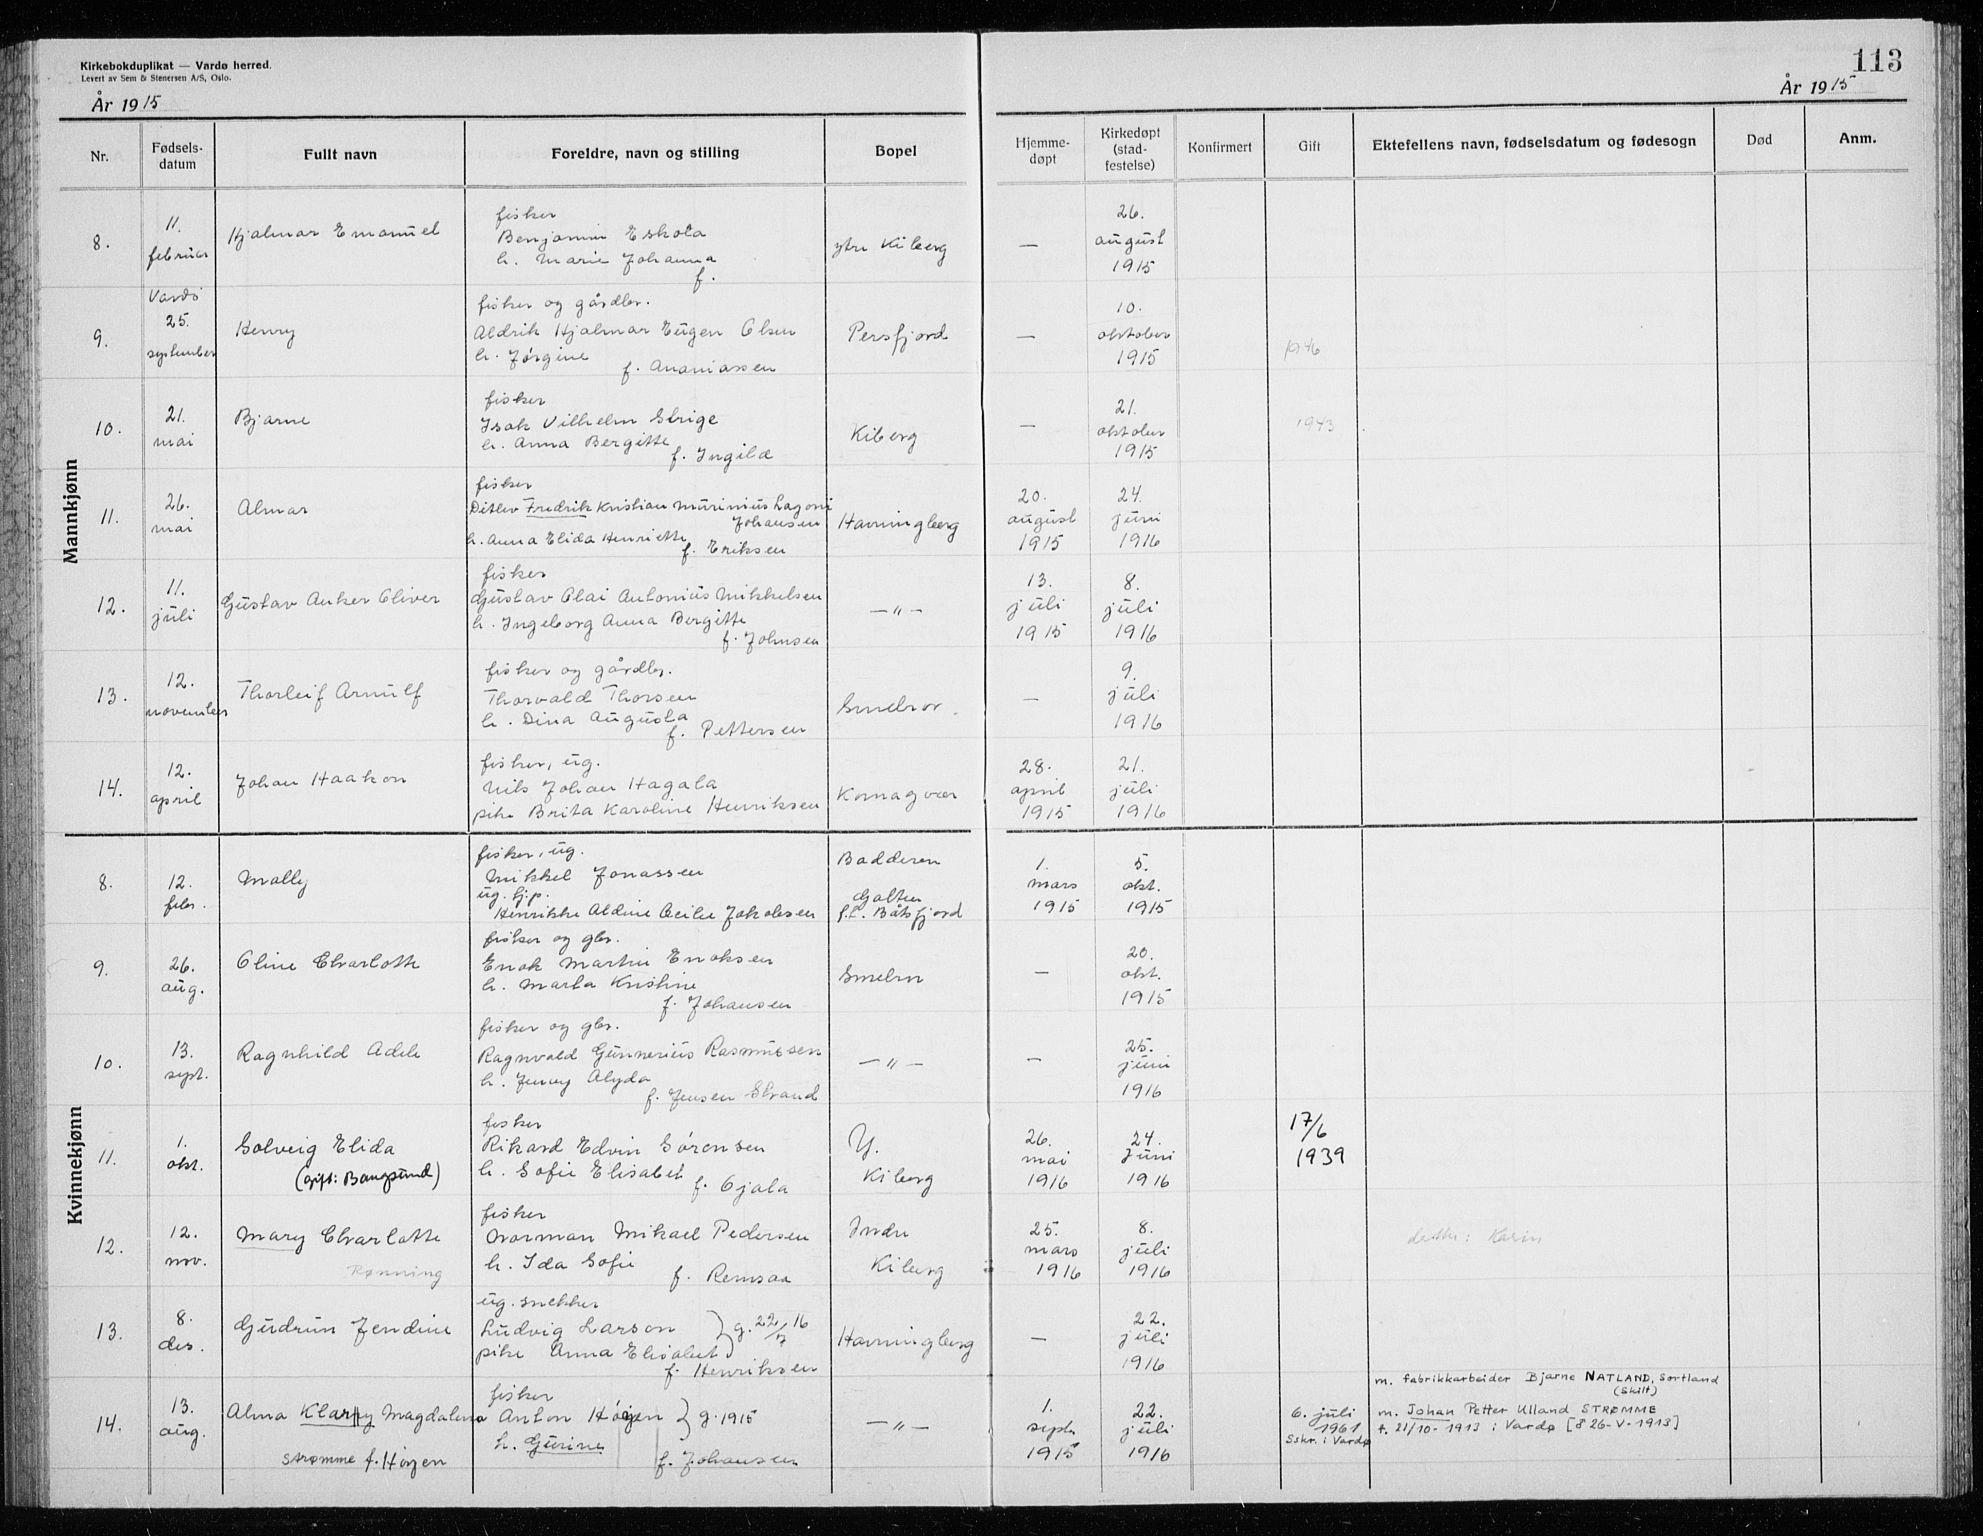 Kirkebokduplikat — Vardø herred.
Levert av Sem & Stenersen A/S, Oslo.
113
År 1915
År 1915
Nr.
Fødsels-
datum
Fullt navn
Foreldre, navn og stilling
Bopel
Hjemme-
døpt
Kirkedøpt
(stad-
festelse)
Konfirmert
Gift
Ektefellens navn, fødselsdatum og fødesogn
Død
Anm.
Mannkjønn
8.
11.
februar
Hjalmar Emanuel
fisker
Benjamin Eskola
h. Marie Johanna
f.
ytre Kiberg
—
26.
august
1915
9.
Vardø
25.
september
Henry
fisker og gårdbr.
Aldrik Hjalmar Eugen Olsen
h. Jørgine
f. Ananiassen
Persfjord
—
10.
oktober
1915
1946
10.
21.
mai
Bjarne
fisker
Isak Vilhelm Strige
h. Anna Bergitte
f. Ingilæ
Kiberg
—
21.
oktober
1915
1943
11.
26.
mai
Almar
fisker
Ditlev Fredrik Kristian Marinius Lagoni
Johansen
h. Anna Elida Henriette
f. Eriksen
Havningberg
20.
august
1915
24.
juni
1916
12.
11.
juli
Gustav Anker Oliver
fisker
Gustav Olai Antonius Mikkelsen
h. Ingeborg Anna Bergitte
f. Johnsen
— " —
13.
juli
1915
8.
juli
1916
13.
12.
november
Thorleif Arnulf
fisker og gårdbr.
Thorvald Thorsen
h. Dina Augusta
f. Pettersen
Smelror
—
9.
juli
1916
14.
12.
april
Johan Haakon
fisker, ug.
Nils Johan Hagala
pike Brita Karoline Henriksen
Komagvær
28.
april
1915
21.
juli
1916
Kvinnekjønn
8.
12.
febr.
Mally
fisker, ug.
Mikkel Jonassen
ug. hj.p.
Henrikke Aldine Cecilie Jakobsen
Badderen
Galten
f.t. Båtsfjord
1.
mars
1915
5.
okt.
1915
9.
26.
aug.
Oline Charlotte
fisker og gbr.
Enok Martin Enoksen
h. Marta Kristine
f. Johansen
Smelror
—
20.
okt.
1915
10.
13.
sept.
Ragnhild Adele
fisker og gbr.
Ragnvald Gunnerius Rasmussen
h. Jenny Alyda
f. Jensen Strand
— " —
—
25.
juni
1916
11.
1.
okt.
Solveig Elida
(gift: Bangsund)
fisker
Rikard Edvin Sørensen
h. Sofie Elisabet
f. Ojala
Y.
Kiberg
26.
mai
1916
24.
Juni
1916
17/6
1939
12.
12.
nov.
Mary Charlotte
Rønning
fisker
Norman Mikael Pedersen
h. Ida Sofie
f. Remsaa
Indre
Kiberg
25.
mars
1916
8.
juli
1916
datter: Karin
13.
8.
des.
Gudrun Jendine
ug. snekker
Ludvig Larson
pike Anna Elisabet
f. Henriksen
g. 22/7 16
Havningberg
—
22.
juli
1916
14.
13.
aug.
Alma Klarry Magdalena
Strømme f. Høyen
fisker
Anton Høyen
h. Gurine
f. Johansen
g. 1915
— " —
1.
sept.
1915
22.
juli
1916
6. juli
1961
Sskr. i Vardø
m. fabrikkarbeider Bjarne NATLAND, Sortland
(skilt)
m. Johan Petter Ulland STRØMME
f. 21/10-1913 i Vardø [8 26-V-1913]